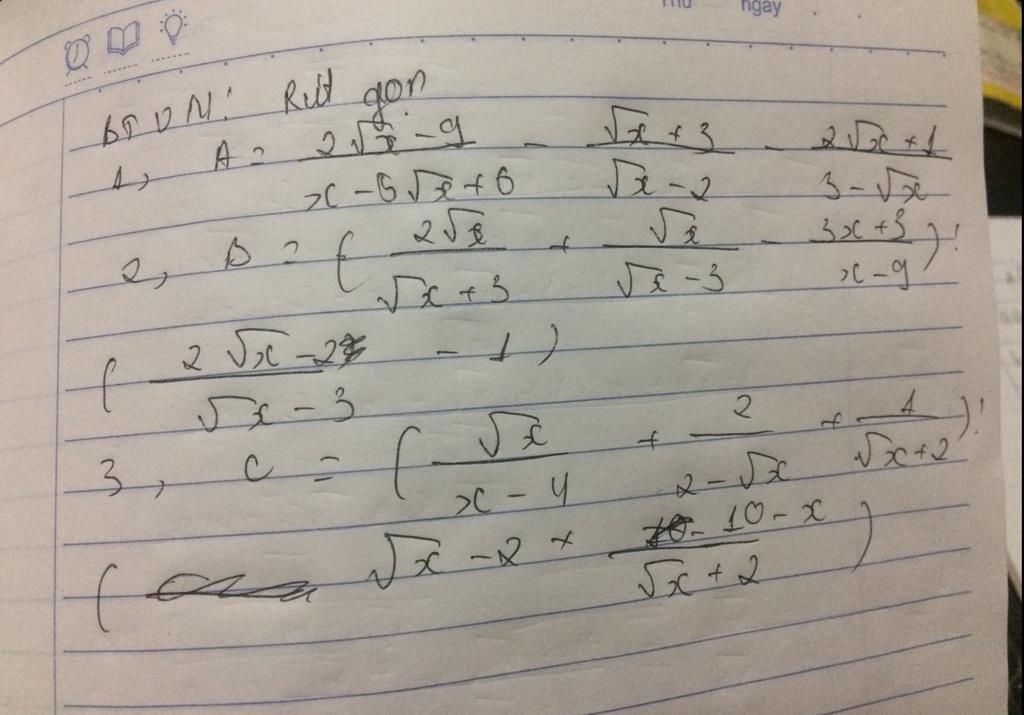 Thứ ngày
BTVN: Rút gọn
1, A = (2√x - 9)/(x - 5√x + 6) - (√x + 3)/(√x - 2) - (2√x + 1)/(3 - √x)
2, B = ( (2√x)/(√x + 3) + (√x)/(√x - 3) - (3x + 3)/(x - 9) ) :
( (2√x - 2)/(√x - 3) - 1 )
3, C = ( (√x)/(x - 4) + 2/(2 - √x) + 1/(√x + 2) ) :
( √x - 2 + (10 - x)/(√x + 2) )